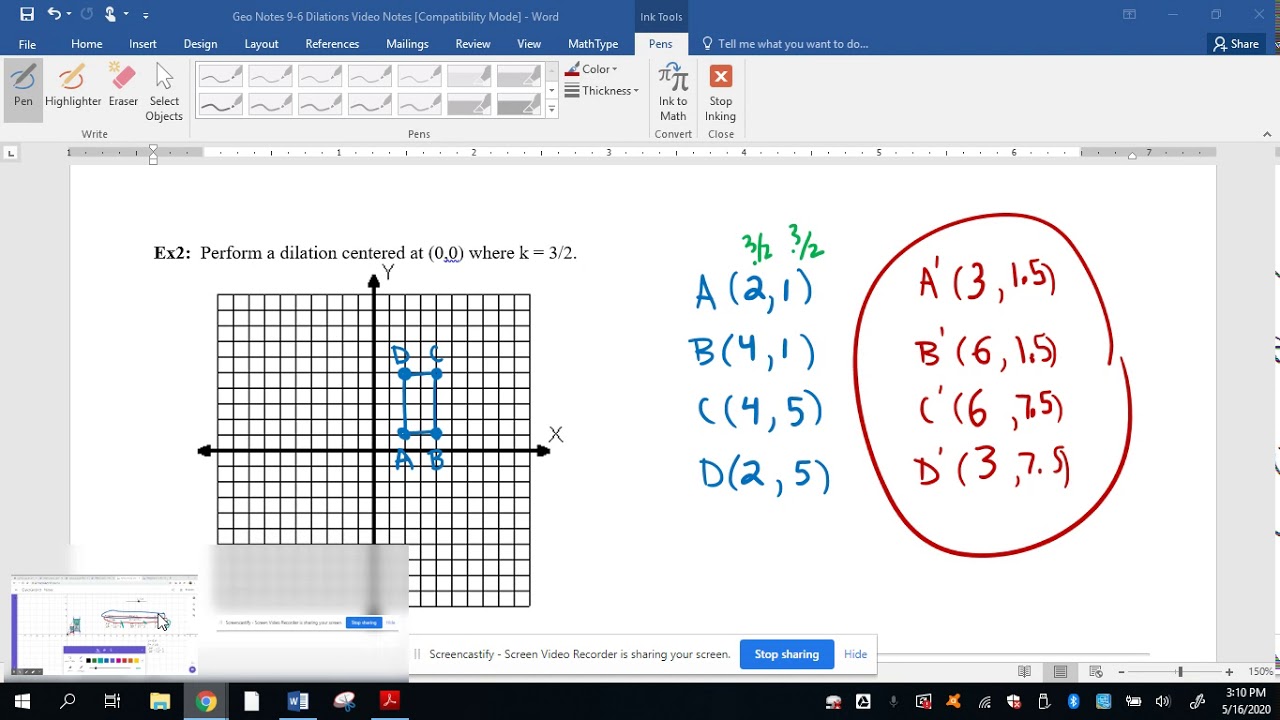 Geo Notes 9-6 Dilations Video Notes [Compatibility Mode] - Word
Ink Tools
File Home Insert Design Layout References Mailings Review View MathType Pens Tell me what you want to do... Share
Pen Highlighter Eraser Select Objects
Color
Thickness
Ink to Math
Stop Inking
Write Pens Convert Close
1 1 2 3 4 5 6 7
3/2 3/2
Ex2: Perform a dilation centered at (0,0) where k = 3/2.
Y
A (2,1) A' (3,1.5)
D C
B(4,1) B' (6,1.5)
C(4,5) C' (6,7.5)
X
A B
D(2,5) D' (3,7.5)
Screencastify - Screen Video Recorder is sharing your screen. Stop sharing Hide
Screencastify - Screen Video Recorder is sharing your screen. Stop sharing Hide
150%
3:10 PM
5/16/2020